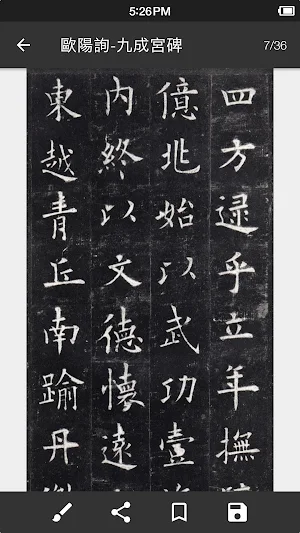 5:26PM
歐陽詢-九成宮碑
7/36
四方逮乎立年撫
億兆始以武功壹
內終以文德懷遠
東越青丘南踰丹